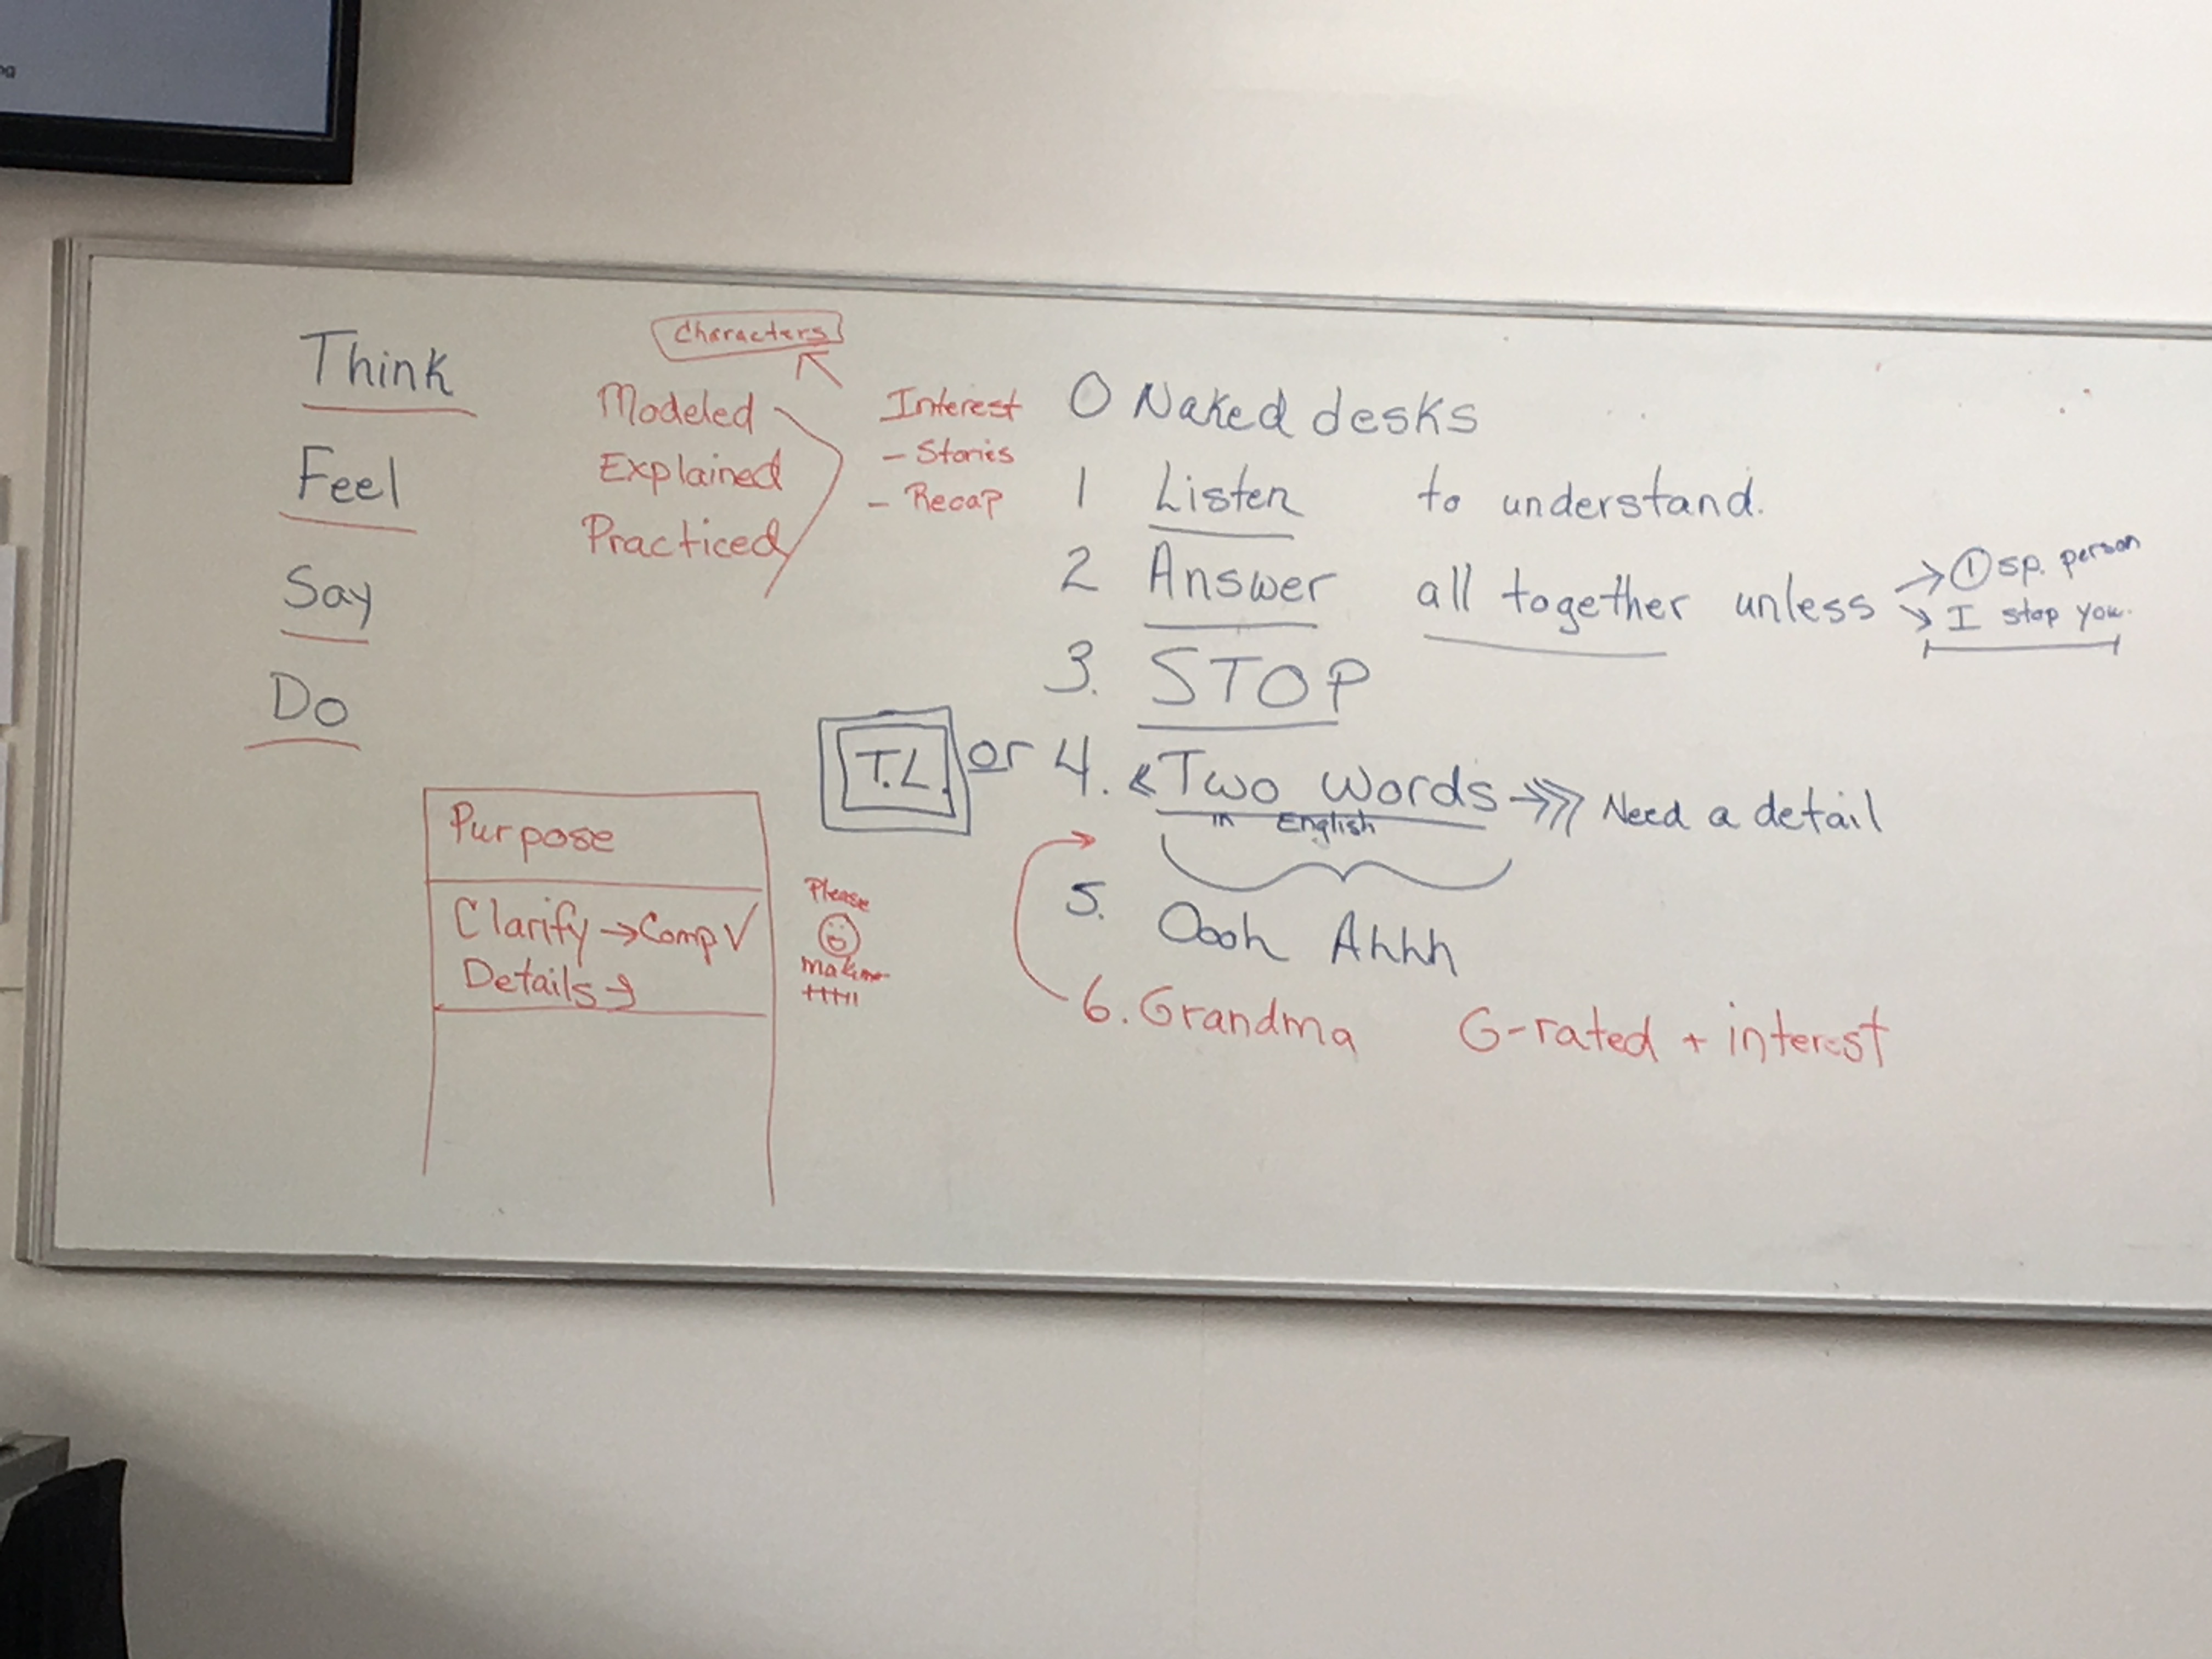 ng
Think
Feel
Say
Do
Characters
Modeled
Explained
Practiced
Interest
- Stories
- Recap
0 Naked desks
1 Listen to understand.
2 Answer all together unless → ① sp. person
→ I stop you.
3. STOP
T.L. or 4. Two Words → Need a detail
in English
5. Oooh Ahhh
6. Grandma G-rated + interest
Purpose
Clarify → Comp √
Details →
Please